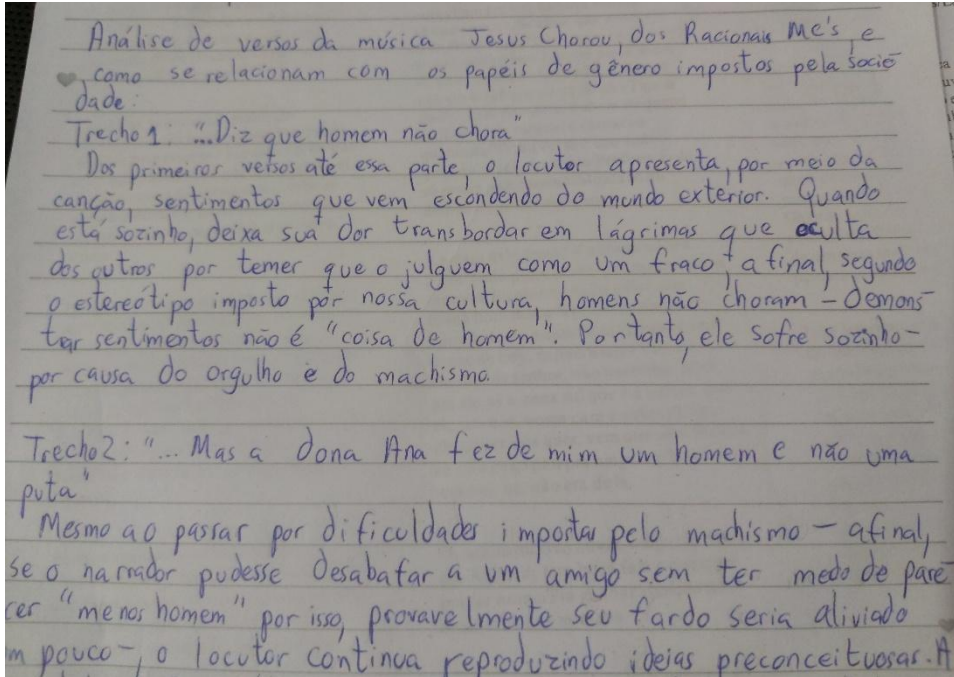 Análise de versos da música Jesus Chorou, dos Racionais MC's, e
como se relacionam com os papéis de gênero impostos pela socie-
dade:
Trecho 1: "...Diz que homem não chora"
Dos primeiros versos até essa parte, o locutor apresenta, por meio da
canção, sentimentos que vem escondendo do mundo exterior. Quando
está sozinho, deixa sua dor transbordar em lágrimas que oculta
dos outros por temer que o julguem como um fraco, afinal, segundo
o estereótipo imposto por nossa cultura, homens não choram - demons-
trar sentimentos não é "coisa de homem". Portanto, ele sofre sozinho -
por causa do orgulho e do machismo.
Trecho 2: "... Mas a dona Ana fez de mim um homem e não uma
puta"
Mesmo ao passar por dificuldades impostas pelo machismo - afinal,
se o narrador pudesse desabafar a um amigo sem ter medo de pare-
cer "menos homem" por isso, provavelmente seu fardo seria aliviado
m pouco -, o locutor continua reproduzindo ideias preconceituosas. A